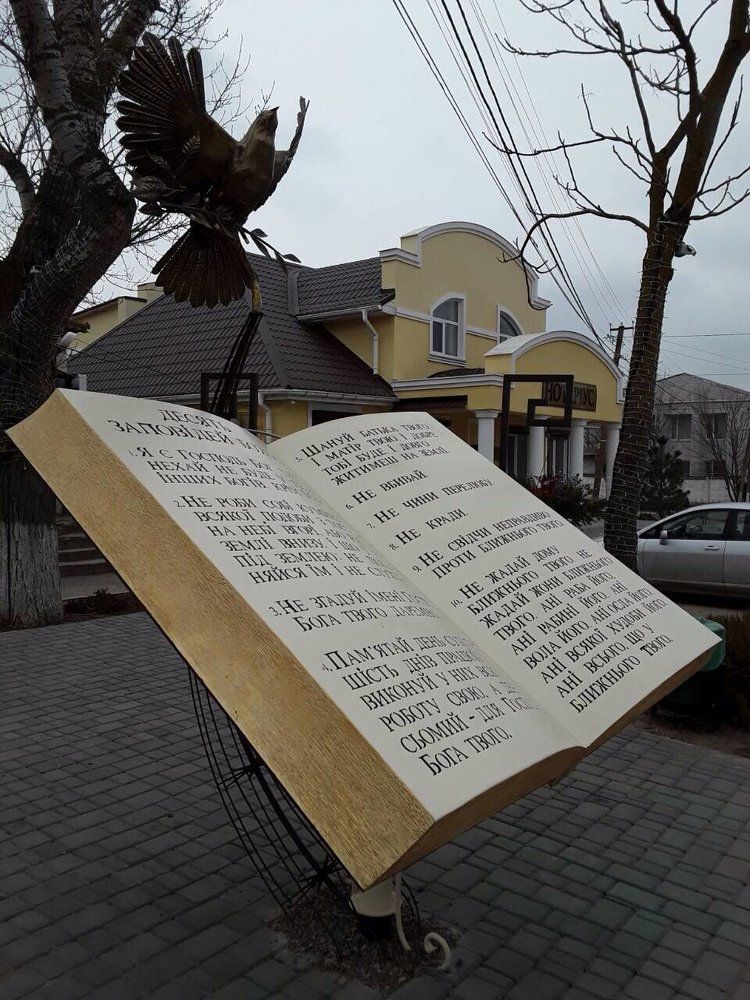 ДЕСЯТЬ
ЗАПОВІДЕЙ
1. Я Є ГОСПОДЬ
НЕХАЙ НЕ БУДЕ
ІНШИХ БОГІВ
2. НЕ РОБИ СОБІ
ВСЯКОЇ ПОДОБИ З
НА НЕБІ ВГОРІ, АБО
ЗЕМЛІ ВНИЗУ, І ЩО
ПІД ЗЕМЛЕЮ, НЕ
НЯЙСЯ ЇМ І НЕ
3. НЕ ЗГАДУЙ ІМЕНІ
БОГА ТВОГО,
4. ПАМ'ЯТАЙ ДЕНЬ
ШІСТЬ ДНІВ
ВИКОНУЙ У НИХ
РОБОТУ СВОЮ, А
СЬОМИЙ - ДЛЯ
БОГА ТВОГО.
5. ШАНУЙ БАТЬКА ТВОГО
І МАТІР ТВОЮ, І ДОБРЕ
ТОБІ БУДЕ І ДОВГО
ЖИТИМЕШ НА ЗЕМЛІ.
6. НЕ ВБИВАЙ.
7. НЕ ЧИНИ ПЕРЕЛЮБУ.
8. НЕ КРАДИ.
9. НЕ СВІДЧИ НЕПРАВДИВО
ПРОТИ БЛИЖНЬОГО ТВОГО.
10. НЕ ЖАДАЙ ДОМУ
БЛИЖНЬОГО ТВОГО, НЕ
ЖАДАЙ ЖОНИ БЛИЖНЬОГО
ТВОГО, АНІ РАБА ЙОГО,
АНІ РАБИНІ ЙОГО, АНІ
ВОЛА ЙОГО, АНІ ОСЛА ЙОГО,
АНІ ВСЯКОЇ ХУДОБИ ЙОГО,
АНІ ВСЬОГО, ЩО У
БЛИЖНЬОГО ТВОГО.
НОТАРІУС